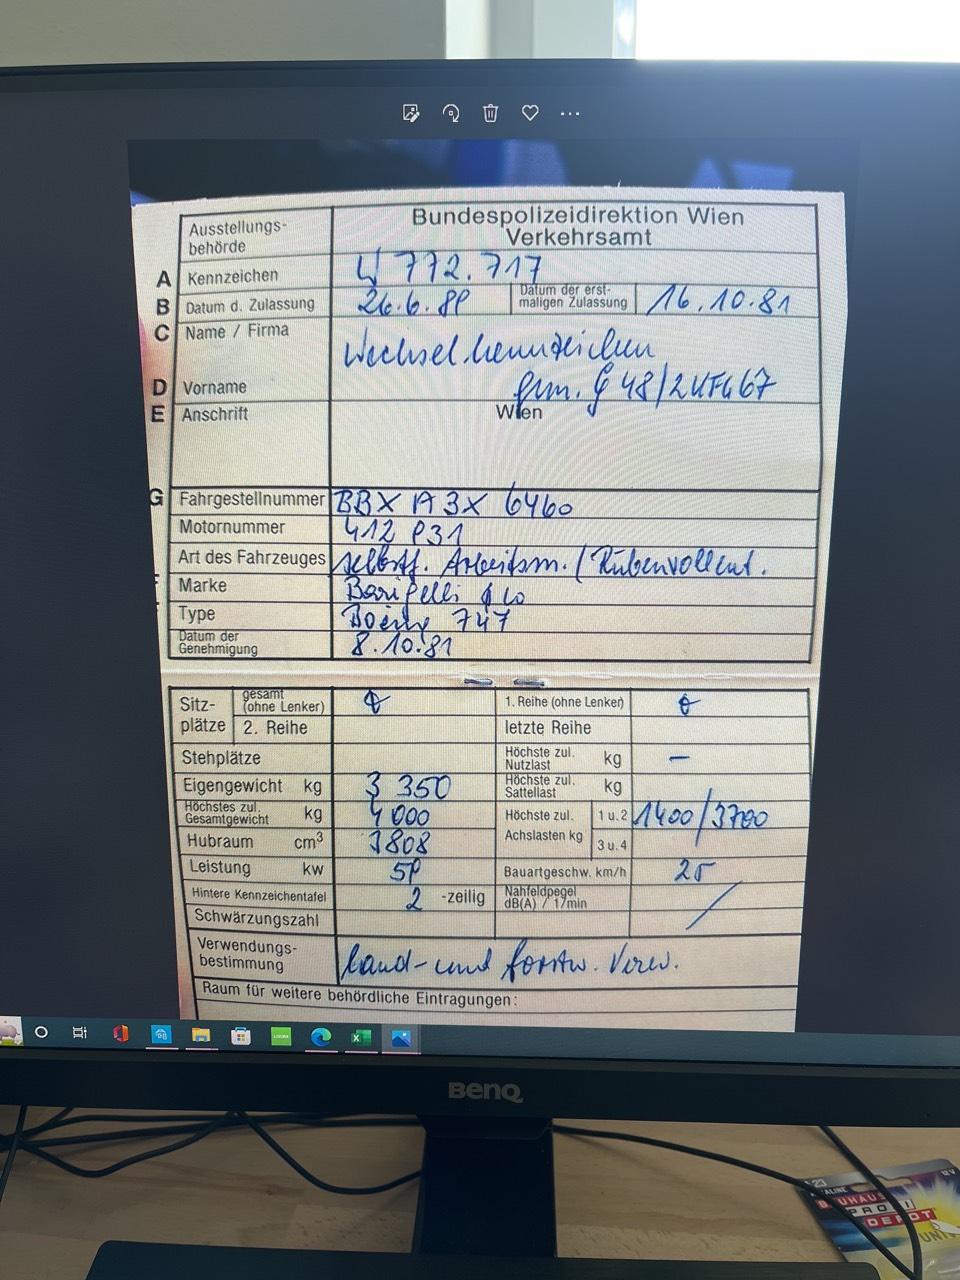 Ausstellungs-
behörde
Bundespolizeidirektion Wien
Verkehrsamt
A Kennzeichen W 772.717
B Datum d. Zulassung 26.6.89 Datum der erst-
maligen Zulassung 16.10.81
C Name / Firma
Wechselkennzeichen
D Vorname gem. § 48/2 KFG 67
E Anschrift Wien
G Fahrgestellnummer BBX A3X 6460
Motornummer 412 P31
Art des Fahrzeuges selbstf. Arbeitsm. / Rübenvollernt.
Marke
Type 747
Datum der
Genehmigung 8.10.81
Sitz-
plätze
gesamt
(ohne Lenker)
1. Reihe (ohne Lenker)
2. Reihe
letzte Reihe
Stehplätze
Höchste zul.
Nutzlast kg –
Eigengewicht kg 3 350
Höchste zul.
Sattellast kg
Höchstes zul.
Gesamtgewicht kg 4 000
Höchste zul.
Achslasten kg
1 u. 2 1400/3700
3 u. 4
Hubraum cm³ 3808
Leistung kw 59
Bauartgeschw. km/h 25
Hintere Kennzeichentafel 2 -zeilig
Nahfeldpegel
dB(A) / 1/min
Schwärzungszahl
Verwendungs-
bestimmung
land- und forstw. Verw.
Raum für weitere behördliche Eintragungen:
BenQ
BAUHAUS
PROFI
DEPOT